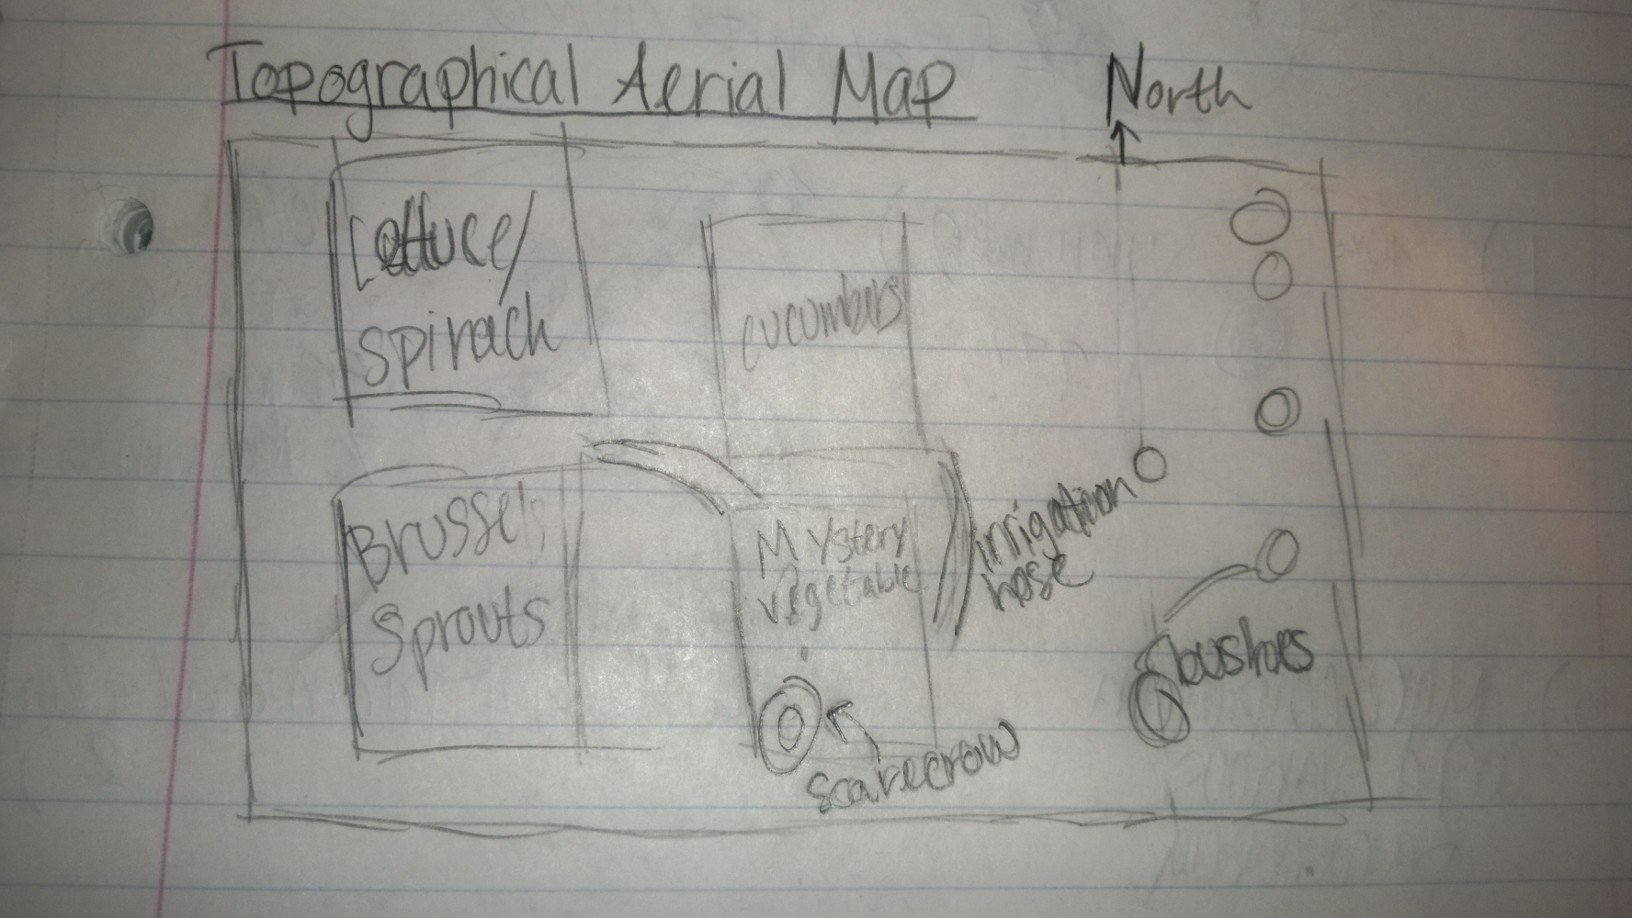 Topographical Aerial Map
North
Lettuce/
spinach
cucumbers
Brussels
Sprouts
Mystery
vegetable
irrigation
hose
bushes
scarecrow